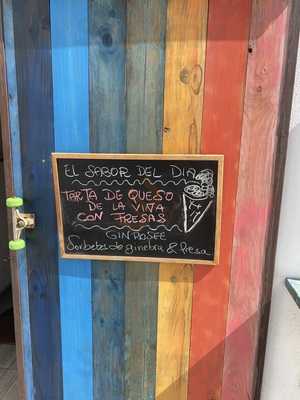 EL SABOR DEL DIA
TARTA DE QUESO
DE LA VIÑA
CON FRESAS
GIN ROSÉE
Sorbetes de ginebra & fresa